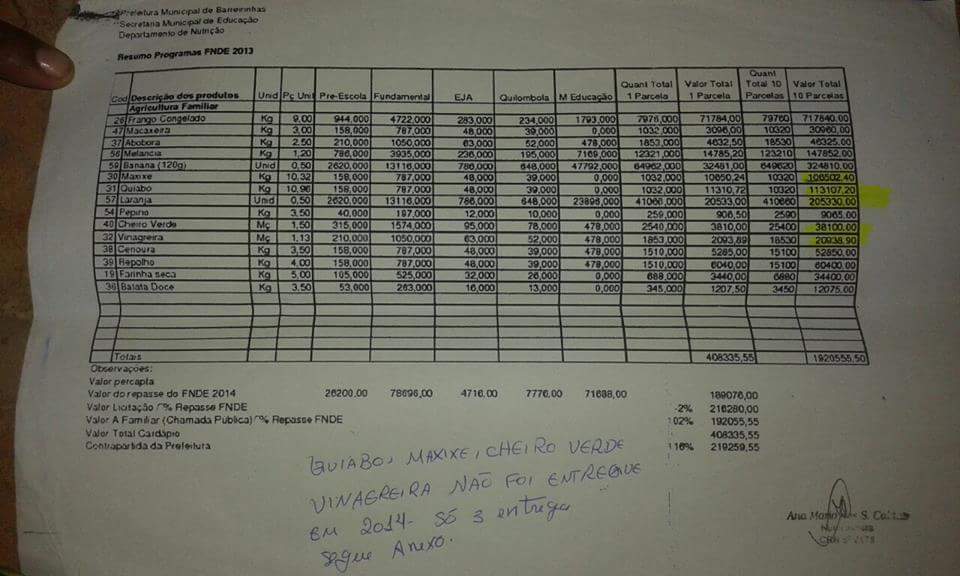 Prefeitura Municipal de Barreirinhas
Secretaria Municipal de Educação
Departamento de Nutrição
Resumo Programas FNDE 2013
Cod Descrição dos produtos Unid Pç Unit Pre-Escola Fundamental EJA Quilombola M Educação Quant Total 1 Parcela Valor Total 1 Parcela Quant Total 10 Parcelas Valor Total 10 Parcelas
Agricultura Familiar
26 Frango Congelado Kg 9,00 944,000 4722,000 283,000 234,000 1793,000 7976,000 71784,00 79760 717840,00
47 Macaxeira Kg 3,00 158,000 787,000 48,000 39,000 0,000 1032,000 3096,00 10320 30960,00
37 Abobora Kg 2,50 210,000 1050,000 63,000 52,000 478,000 1853,000 4632,50 18530 46325,00
56 Melancia Kg 1,20 786,000 3935,000 236,000 195,000 7169,000 12321,000 14785,20 123210 147852,00
59 Banana (120g) Unid 0,50 2620,000 13116,000 786,000 648,000 47792,000 64962,000 32481,00 649620 324810,00
30 Maxixe Kg 10,32 158,000 787,000 48,000 39,000 0,000 1032,000 10650,24 10320 106502,40
31 Quiabo Kg 10,96 158,000 787,000 48,000 39,000 0,000 1032,000 11310,72 10320 113107,20
57 Laranja Unid 0,50 2620,000 13116,000 786,000 648,000 23896,000 41066,000 20533,00 410660 205330,00
54 Pepino Kg 3,50 40,000 197,000 12,000 10,000 0,000 259,000 906,50 2590 9065,00
40 Cheiro Verde Mç 1,50 315,000 1574,000 95,000 78,000 478,000 2540,000 3810,00 25400 38100,00
32 Vinagreira Mç 1,13 210,000 1050,000 63,000 52,000 478,000 1853,000 2093,89 18530 20938,90
38 Cenoura Kg 3,50 158,000 787,000 48,000 39,000 478,000 1510,000 5285,00 15100 52850,00
39 Repolho Kg 4,00 158,000 787,000 48,000 39,000 478,000 1510,000 6040,00 15100 60400,00
19 Farinha seca Kg 5,00 105,000 525,000 32,000 26,000 0,000 688,000 3440,00 6880 34400,00
36 Batata Doce Kg 3,50 53,000 263,000 16,000 13,000 0,000 345,000 1207,50 3450 12075,00
Totais 408335,55 1920555,50
Observações:
Valor percapta
Valor do repasse do FNDE 2014 26200,00 78696,00 4716,00 7776,00 71688,00 189076,00
Valor Licitação / % Repasse FNDE -2% 216280,00
Valor A Familiar (Chamada Publica) / % Repasse FNDE 102% 192055,55
Valor Total Cardápio 408335,55
Contrapartida da Prefeitura 116% 219259,55
QUIABO, MAXIXE, CHEIRO VERDE
VINAGREIRA NÃO FOI ENTREGUE
EM 2014 - SÓ 3 entrega
segue Anexo.
Ana Maria S.